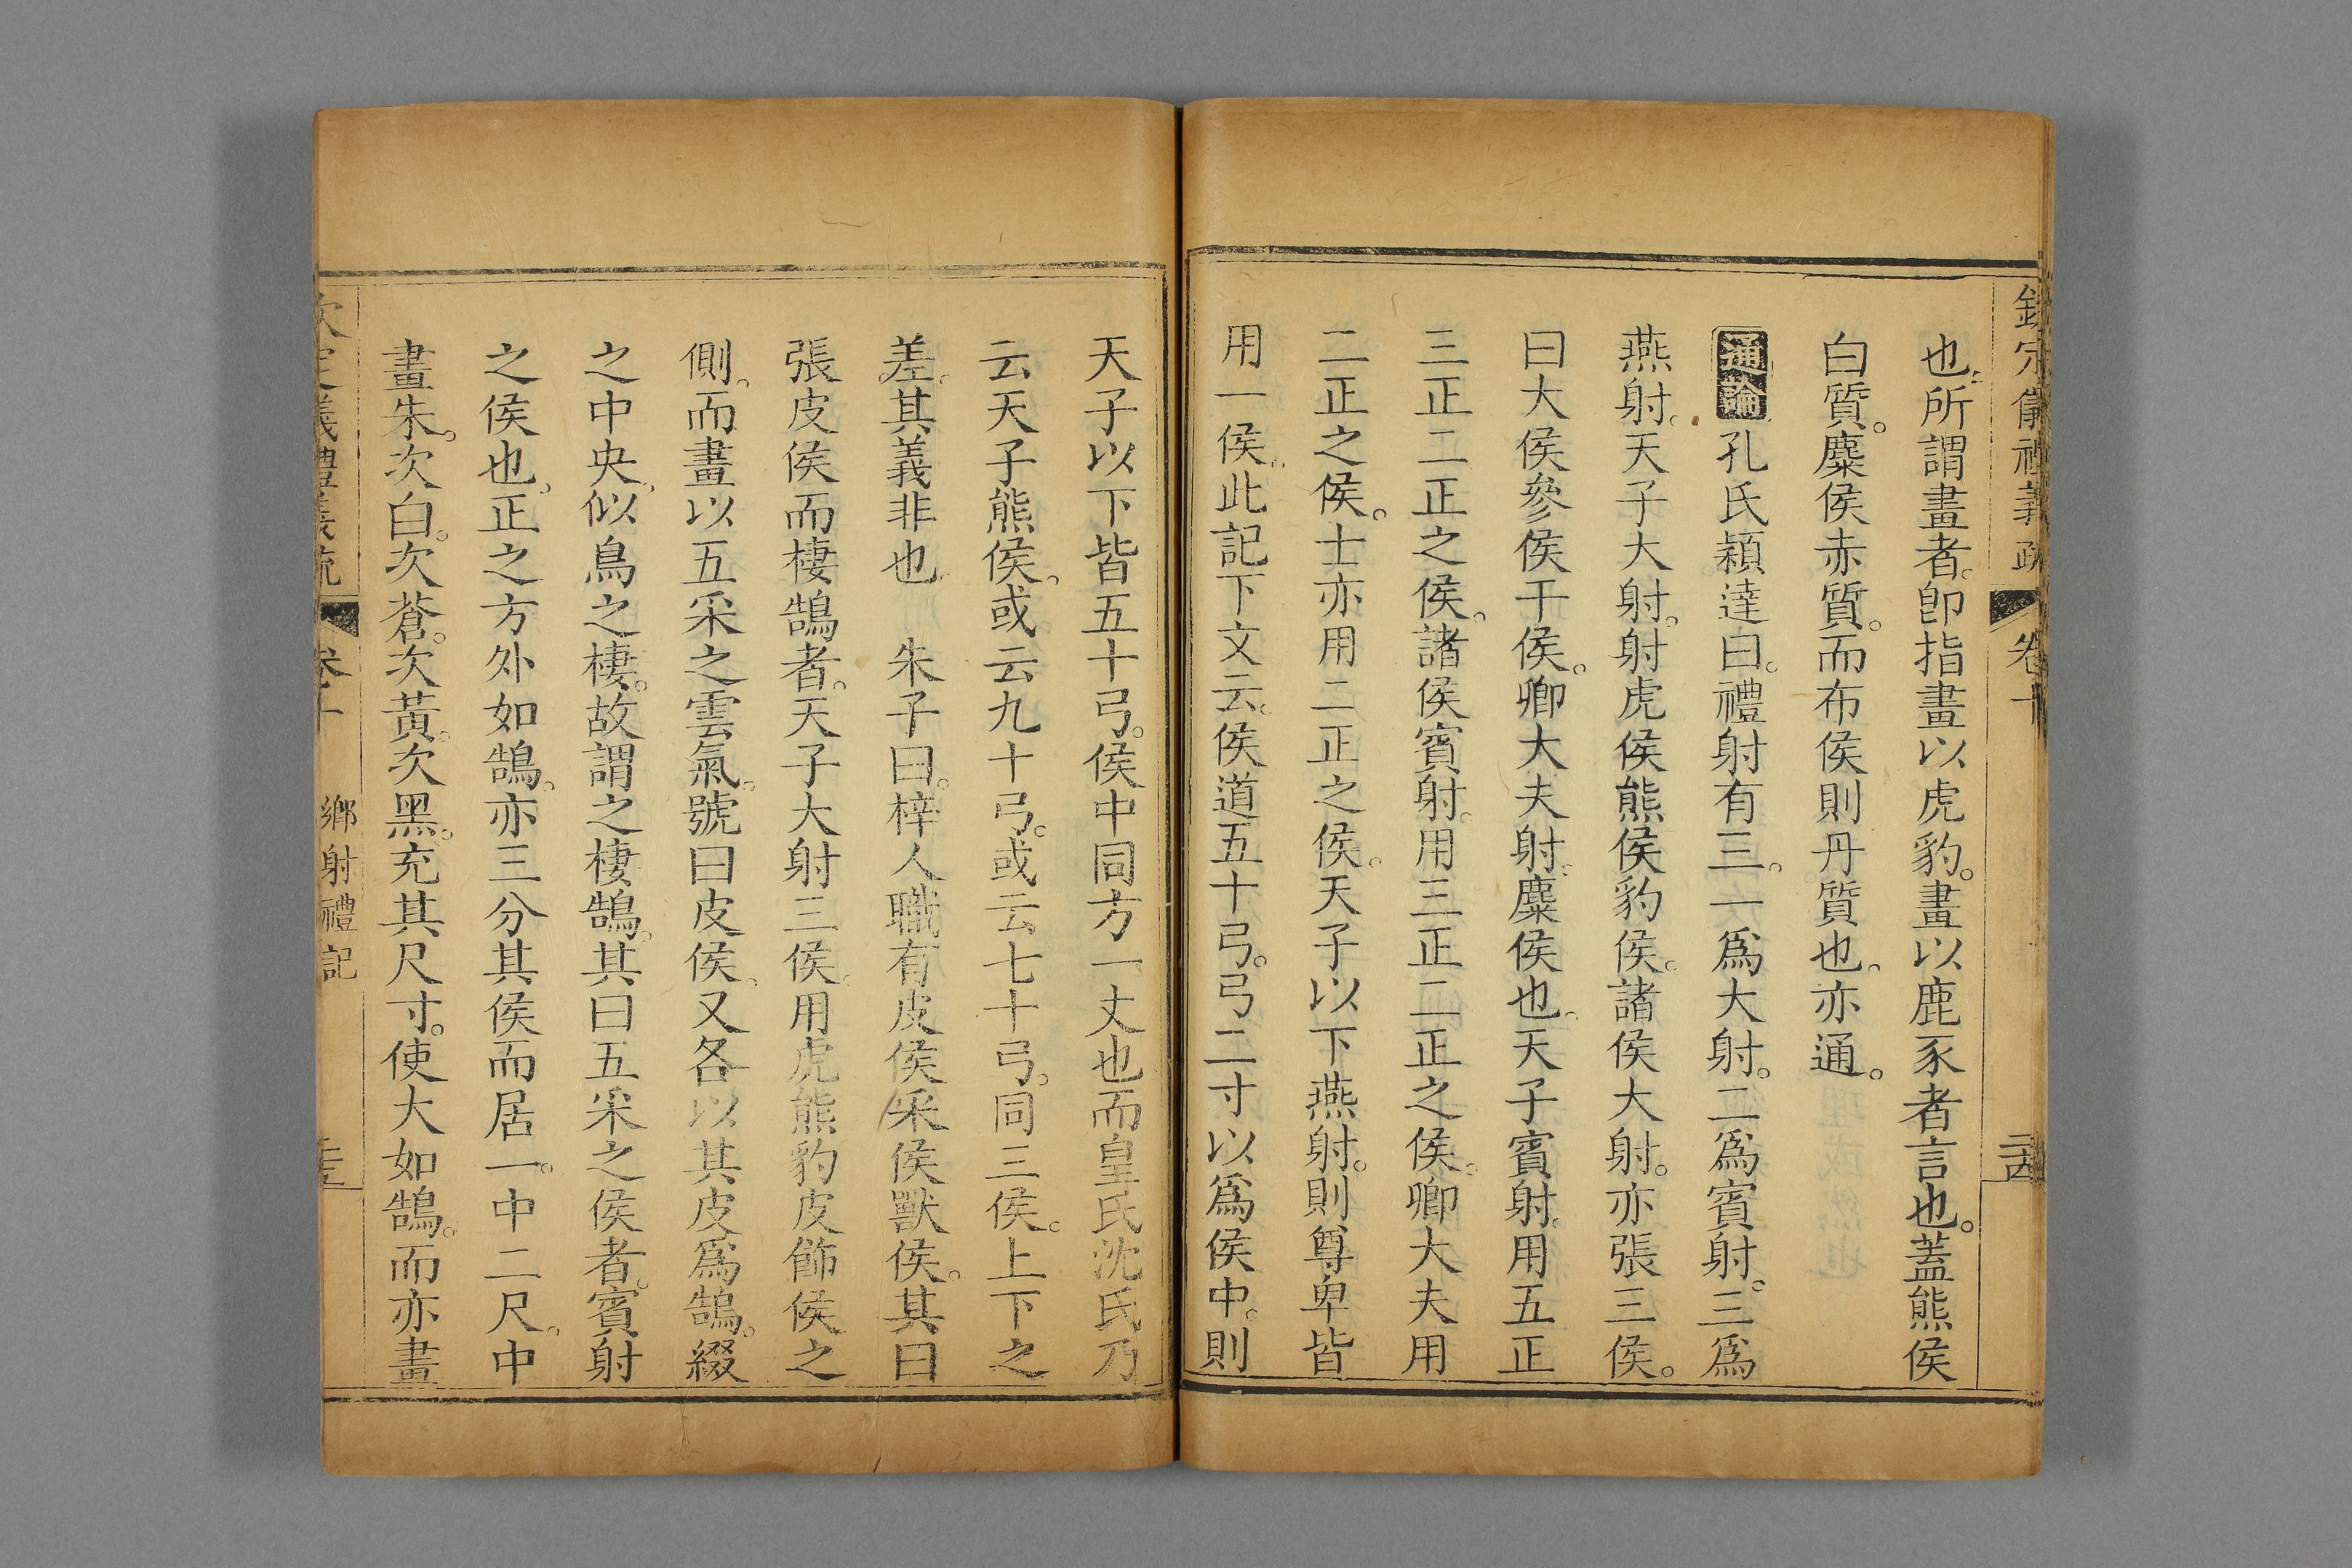 欽定儀禮義疏 卷十 二十四
也所謂畫者。卽指畫以虎豹。畫以鹿豕者言也。蓋熊侯
白質。麋侯赤質。而布侯則丹質也。亦通。
通論 孔氏穎達曰。禮射有三。一爲大射。二爲賓射。三爲
燕射。天子大射。射虎侯熊侯豹侯。諸侯大射。亦張三侯。
曰大侯參侯干侯。卿大夫射。麋侯也。天子賓射。用五正
三正二正之侯。諸侯賓射。用三正二正之侯。卿大夫用
二正之侯。士亦用二正之侯。天子以下燕射。則尊卑皆
用一侯。此記下文云。侯道五十弓。弓二寸以爲侯中。則
天子以下皆五十弓。侯中同方一丈也而皇氏沈氏乃
云天子熊侯。或云九十弓。或云七十弓。同三侯。上下之
差。其義非也 朱子曰。梓人職有皮侯采侯獸侯。其曰
張皮侯而棲鵠者。天子大射三侯。用虎熊豹皮飾侯之
側。而畫以五采之雲氣。號曰皮侯。又各以其皮爲鵠。綴
之中央。似鳥之棲。故謂之棲鵠。其曰五采之侯者。賓射
之侯也。正之方外如鵠。亦三分其侯而居一。中二尺。中
畫朱。次白。次蒼。次黃。次黑。充其尺寸。使大如鵠。而亦畫
欽定義禮義疏 卷十 鄉射禮記 二十五